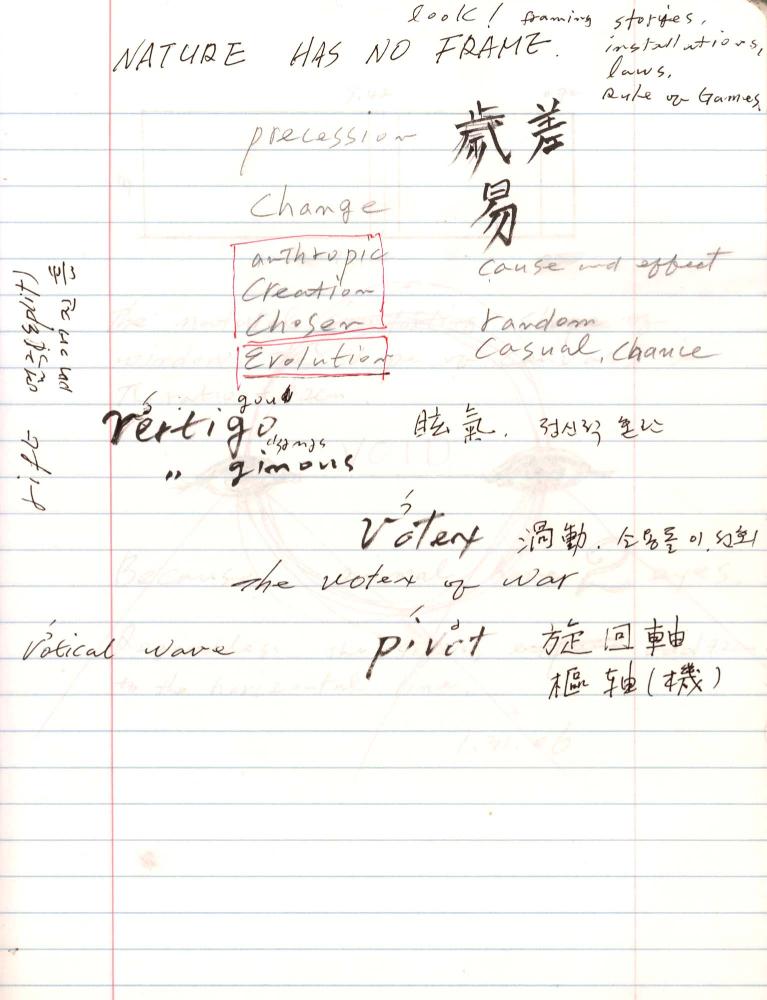 look! framing stories,
NATURE HAS NO FRAME.
installations,
laws,
Rule of Games.
precession 歲差
Change 易
anthropic
cause and effect
Creation
Chosen
random
Evolution
Casual, chance
vertigo 眩氣. 정신적 혼란
" ginous
votex 渦動. 소용돌이, 선회
the votex of war
votical wave
pivot 旋回軸
樞軸(機)